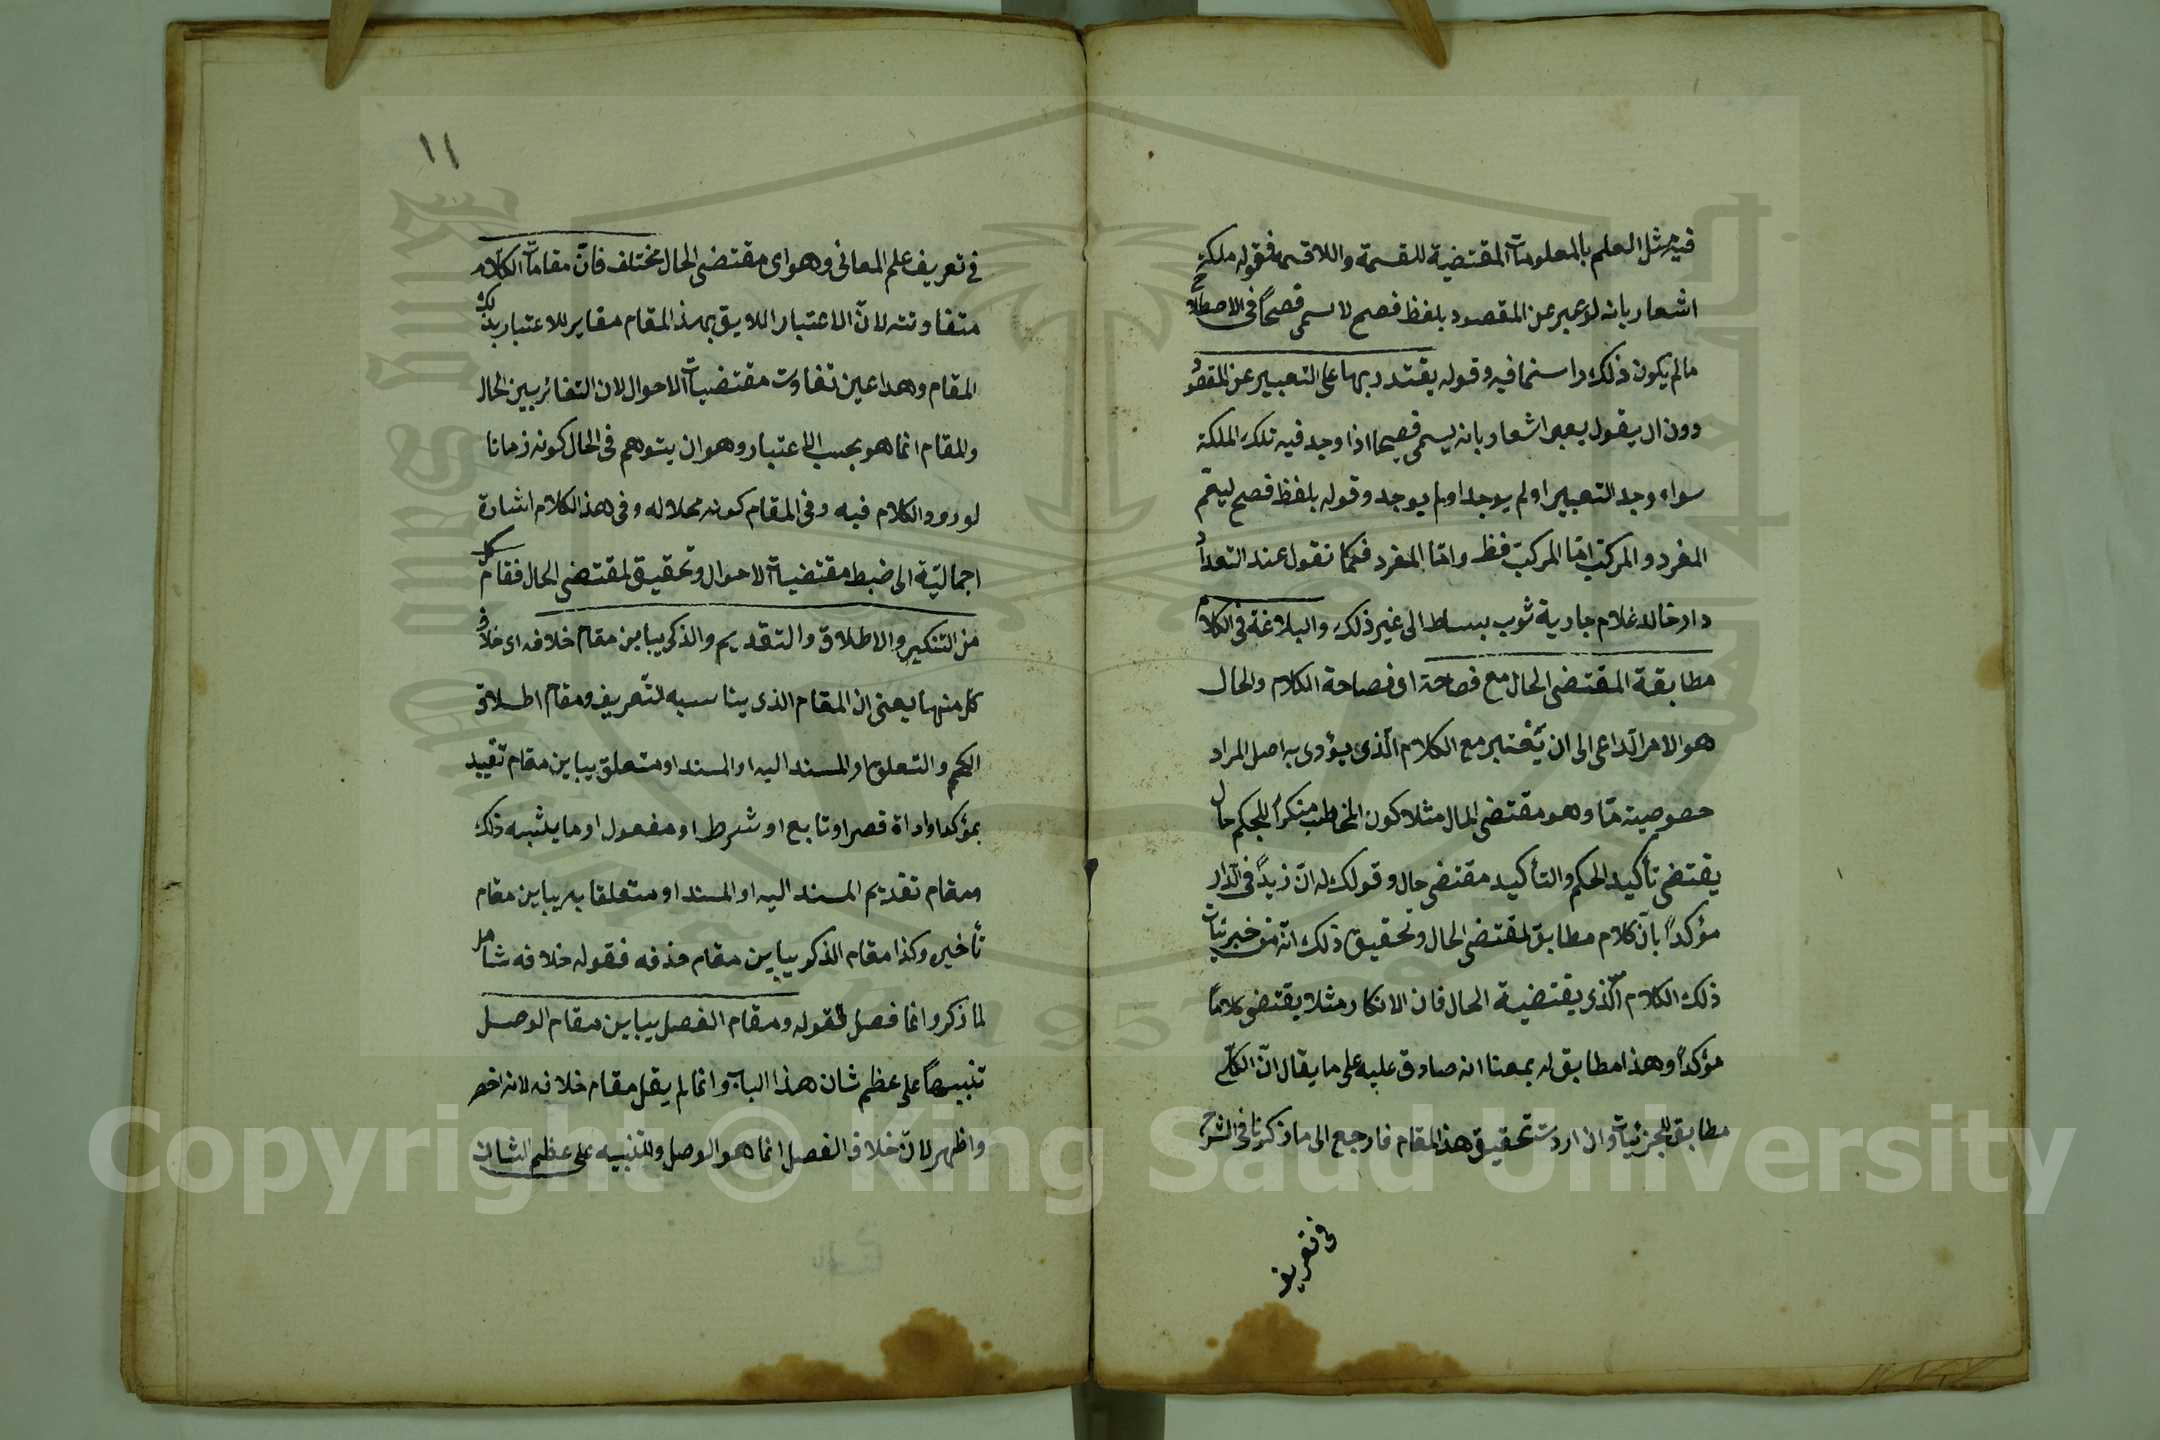 فيه مثل العلم بالمعلومات المقتضية للقسمة واللاقسمة فقوله ملكة
اشعار بانه لو عبر عن المقصود بلفظ فصيح لا يسمى فصيحاً فى الاصطلاح
مالم يكون ذلك راسخا فيه وقوله يقتدر بها على التعبير عن المقصود
دون ان يقول يعبر اشعار بانه يسمى فصيحا اذا وجد فيه تلك الملكة
سواء وجد التعبير او لم يوجد وقوله بلفظ فصيح ليعمّ
المفرد والمركب امّا المركب فظ وامّا المفرد فكما نقول عند التعداد
دار خالد غلام جارية ثوب بساط الى غير ذلك والبلاغة فى الكلام
مطابقة المقتضى الحال مع فصاحته اى فصاحة الكلام والحال
هو الامر الدّاعى الى ان يُعْتبر مع الكلام الّذى يؤدى به اصل المراد
خصوصية مّا وهو مقتضى الحال مثلا كون المخاطب منكراً للحكم حال
يقتضى تأكيد الحكم والتأكيد مقتضى حال وقولك له انّ زيداً فى الدّار
مؤكداً بانّ كلام مطابق لمقتضى الحال وتحقيق ذلك انّه من جزئيات
ذلك الكلام الّذى يقتضية الحال فان الانكار مثلا يقتضى كلاماً
مؤكداً وهذا مطابق له بمعنا انه صادق عليه على ما يقال انّ الكلّى
مطابق للجزئيات وان اردت تحقيق هذا المقام فارجع الى ما ذكرنا فى الشرح
فى تعريف
١١
فى تعريف علم المعانى وهو اى مقتضى الحال مختلف فانّ مقامات الكلام
متفاوتته لانّ الاعتبار اللايق بهذا المقام مغاير للاعتبار بذلك
المقام وهذا عين تفاوت مقتضيات الاحوال لان التغائر بين الحال
والمقام انما هو بحسب الاعتبار وهو ان يتوهم فى الحال كونه زمانا
لورود الكلام فيه وفى المقام كونه محلا له وفى هذا الكلام اشارة
اجماليّة الى ضبط مقتضيات الاحوال وتحقيق لمقتضى الحال فقام كل
من التنكير والاطلاق والتقديم والذكر يباين مقام خلافه اى خلاف
كل منها يعنى ان المقام الذى يناسبه التّعريف ومقام اطلاق
الحكم والتعلق او المسند اليه او المسند او متعلق يباين مقام تقييد
بمؤكد او اداة قصر او تابع او شرط او مفعول او ما يشبه ذلك
ومقام تقديم المسند اليه او المسند او متعلقا به يباين مقام
تأخيره وكذا مقام الذكر يباين مقام حذفه فقوله خلافه شامل
لما ذكر وانما فصل قوله ومقام الفصل يباين مقام الوصل
تنبيهاً على عظم شان هذا الباب وانما لم يقل مقام خلافه لانه اخصر
واظهر لانّ خلاف الفصل انما هو الوصل وللتنبيه على عظم الشان
Copyright © King Saud University
1957